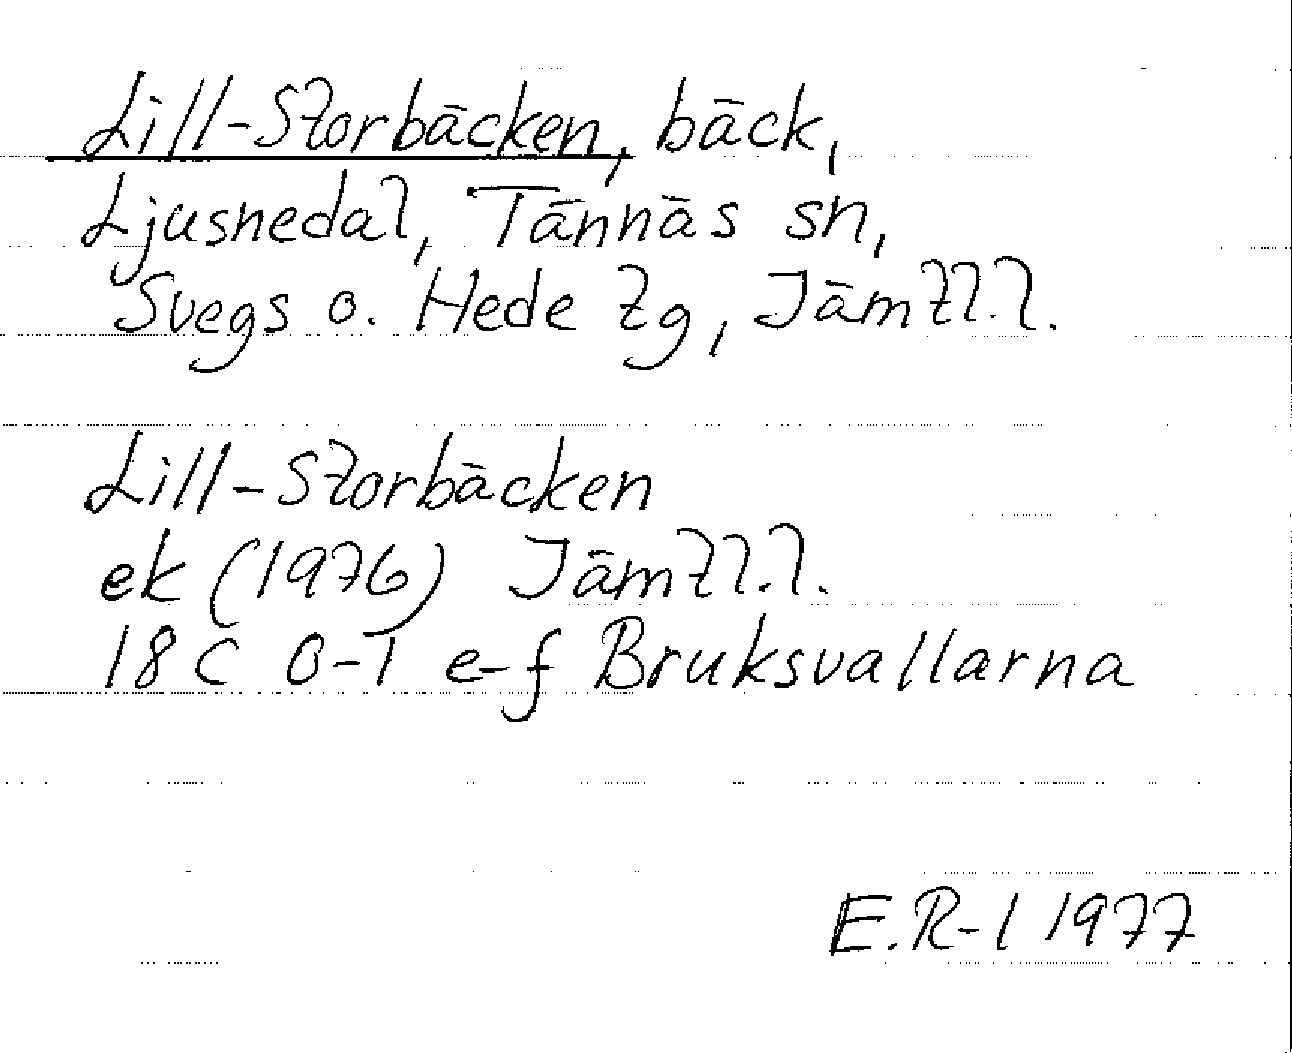 Lill-Storbäcken, bäck,
Ljusnedal, Tännäs sn,
Svegs o. Hede tg, Jämtl.l.
Lill-Storbäcken
ek (1976) Jämtl.l.
18C 0-1 e-f Bruksvallarna
E.R-l 1977